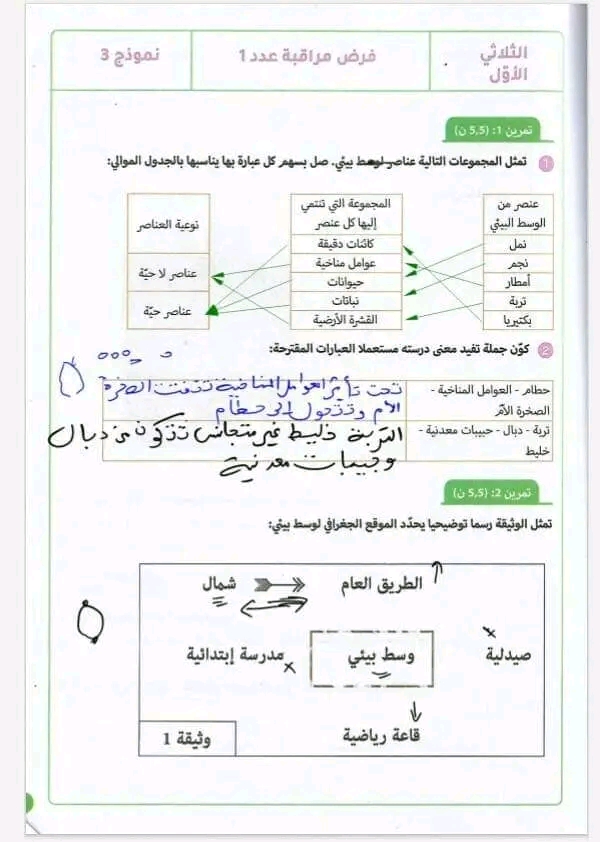 الثلاثي الأوّل
فرض مراقبة عدد 1
نموذج 3
تمرين 1: (5,5 ن)
1 تمثل المجموعات التالية عناصر لوسط بيئي. صل بسهم كل عبارة بها يناسبها بالجدول الموالي:
عنصر من الوسط البيئي
نمل
نجم
أمطار
تربة
بكتيريا
المجموعة التي تنتمي إليها كل عنصر
كائنات دقيقة
عوامل مناخية
حيوانات
نباتات
القشرة الأرضية
نوعية العناصر
عناصر لا حيّة
عناصر حيّة
2 كوّن جملة تفيد معنى درسته مستعملا العبارات المقترحة:
حطام - العوامل المناخية -
الصخرة الأمّ
تحت تأثير العوامل المناخية تتفتت الصخرة
الأم وتتحول الى حطام
تربة - دبال - حبيبات معدنية -
خليط
التربة خليط غير متجانس تتكون من دبال
و حبيبات معدنية
تمرين 2: (5,5 ن)
تمثل الوثيقة رسما توضيحيا يحدّد الموقع الجغرافي لوسط بيئي:
الطريق العام
شمال
صيدلية
وسط بيئي
مدرسة إبتدائية
قاعة رياضية
وثيقة 1